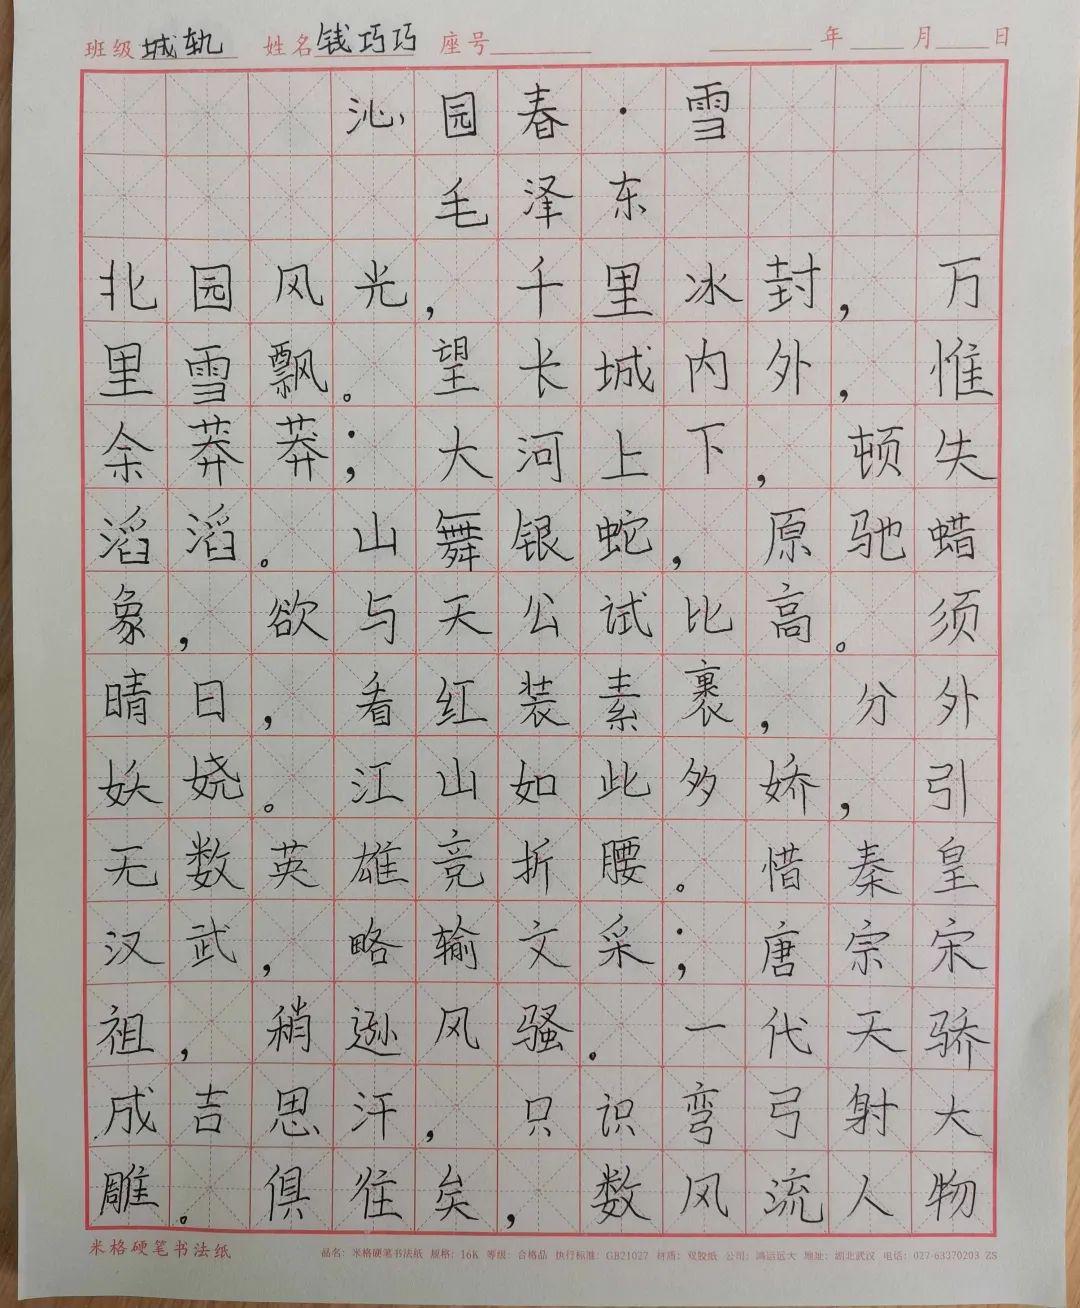 班级 城轨 姓名 钱巧巧 座号 年 月 日
沁园春·雪
毛泽东
北园风光，千里冰封，万
里雪飘。望长城内外，惟
余莽莽；大河上下，顿失
滔滔。山舞银蛇，原驰蜡
象，欲与天公试比高。须
晴日，看红装素裹，分外
妖娆。江山如此多娇，引
无数英雄竞折腰。惜秦皇
汉武，略输文采；唐宗宋
祖，稍逊风骚。一代天骄
成吉思汗，只识弯弓射大
雕。俱往矣，数风流人物
米格硬笔书法纸
品名：米格硬笔书法纸 规格：16K 等级：合格品 执行标准：GB21027 材质：双胶纸 公司：鸿运远大 地址：湖北武汉 电话：027-63370203 ZS